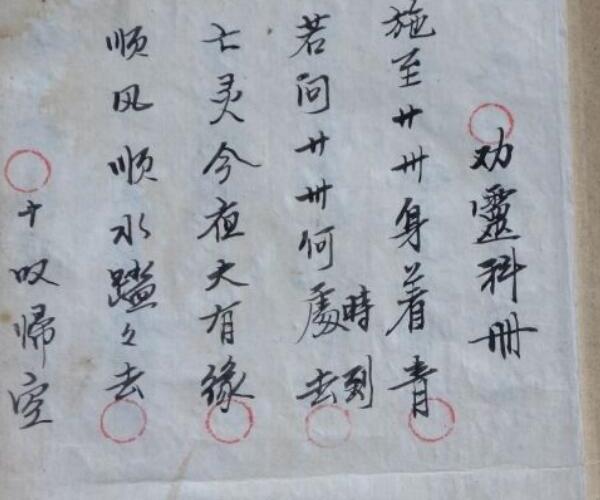 劝靈科册
施至卄卅身着青
若问卄卅何處去
時到
亡灵今夜大有緣
顺风顺水蹓々去
十叹歸空